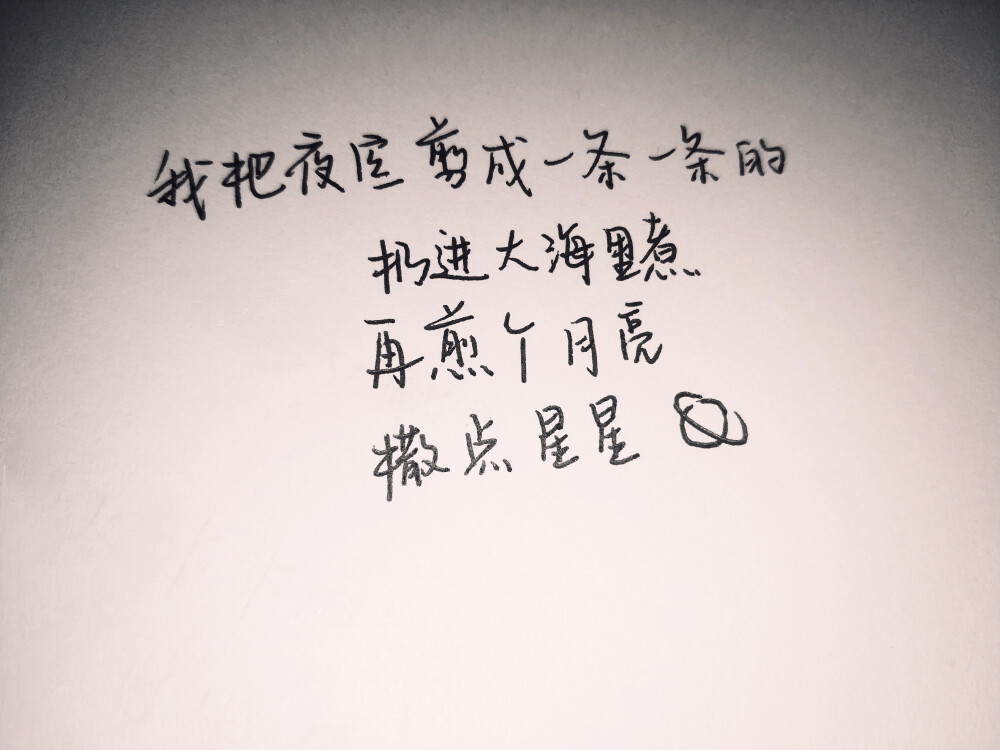 我把夜空剪成一条一条的
扔进大海里煮
再煎个月亮
撒点星星